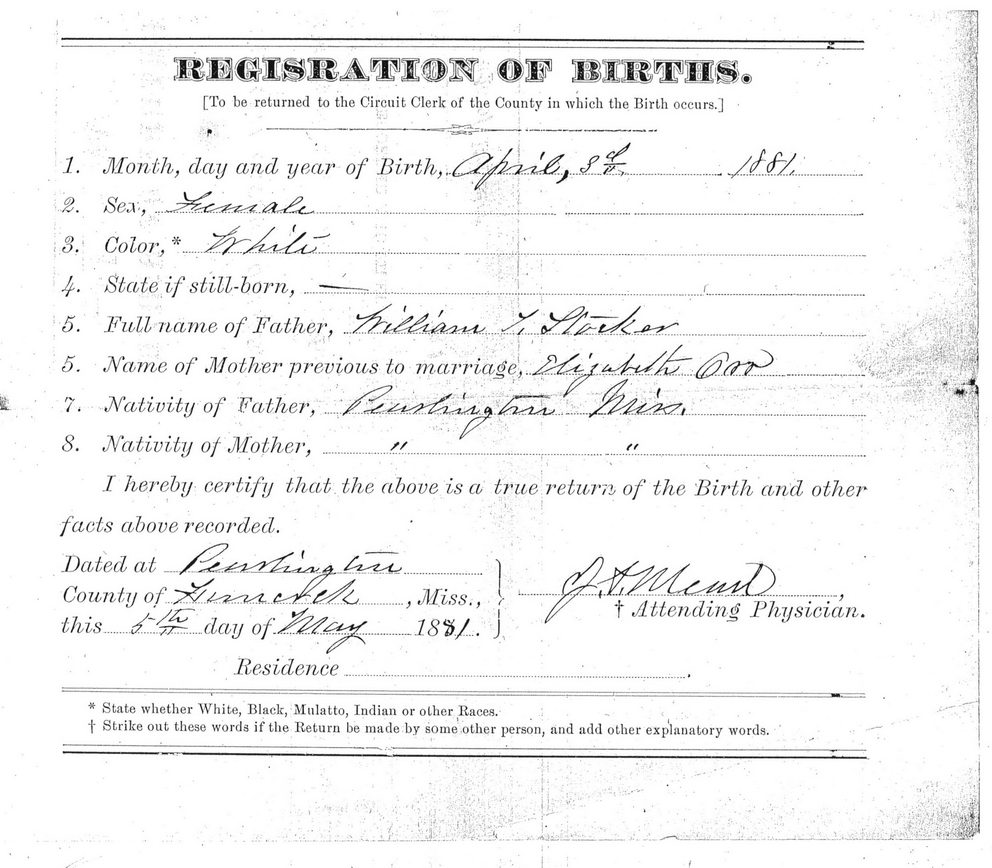 REGISRATION OF BIRTHS.
[To be returned to the Circuit Clerk of the County in which the Birth occurs.]
1. Month, day and year of Birth, April, 3d 1881.
2. Sex, Female
3. Color,* White
4. State if still-born, —
5. Full name of Father, William T. Stocker
5. Name of Mother previous to marriage, Elizabeth Orr
7. Nativity of Father, Pearlington Miss.
8. Nativity of Mother, " "
I hereby certify that the above is a true return of the Birth and other
facts above recorded.
Dated at Pearlington
County of Hancock, Miss.,
this 5th day of May 1881.
J. A. Mead
† Attending Physician.
Residence
* State whether White, Black, Mulatto, Indian or other Races.
† Strike out these words if the Return be made by some other person, and add other explanatory words.